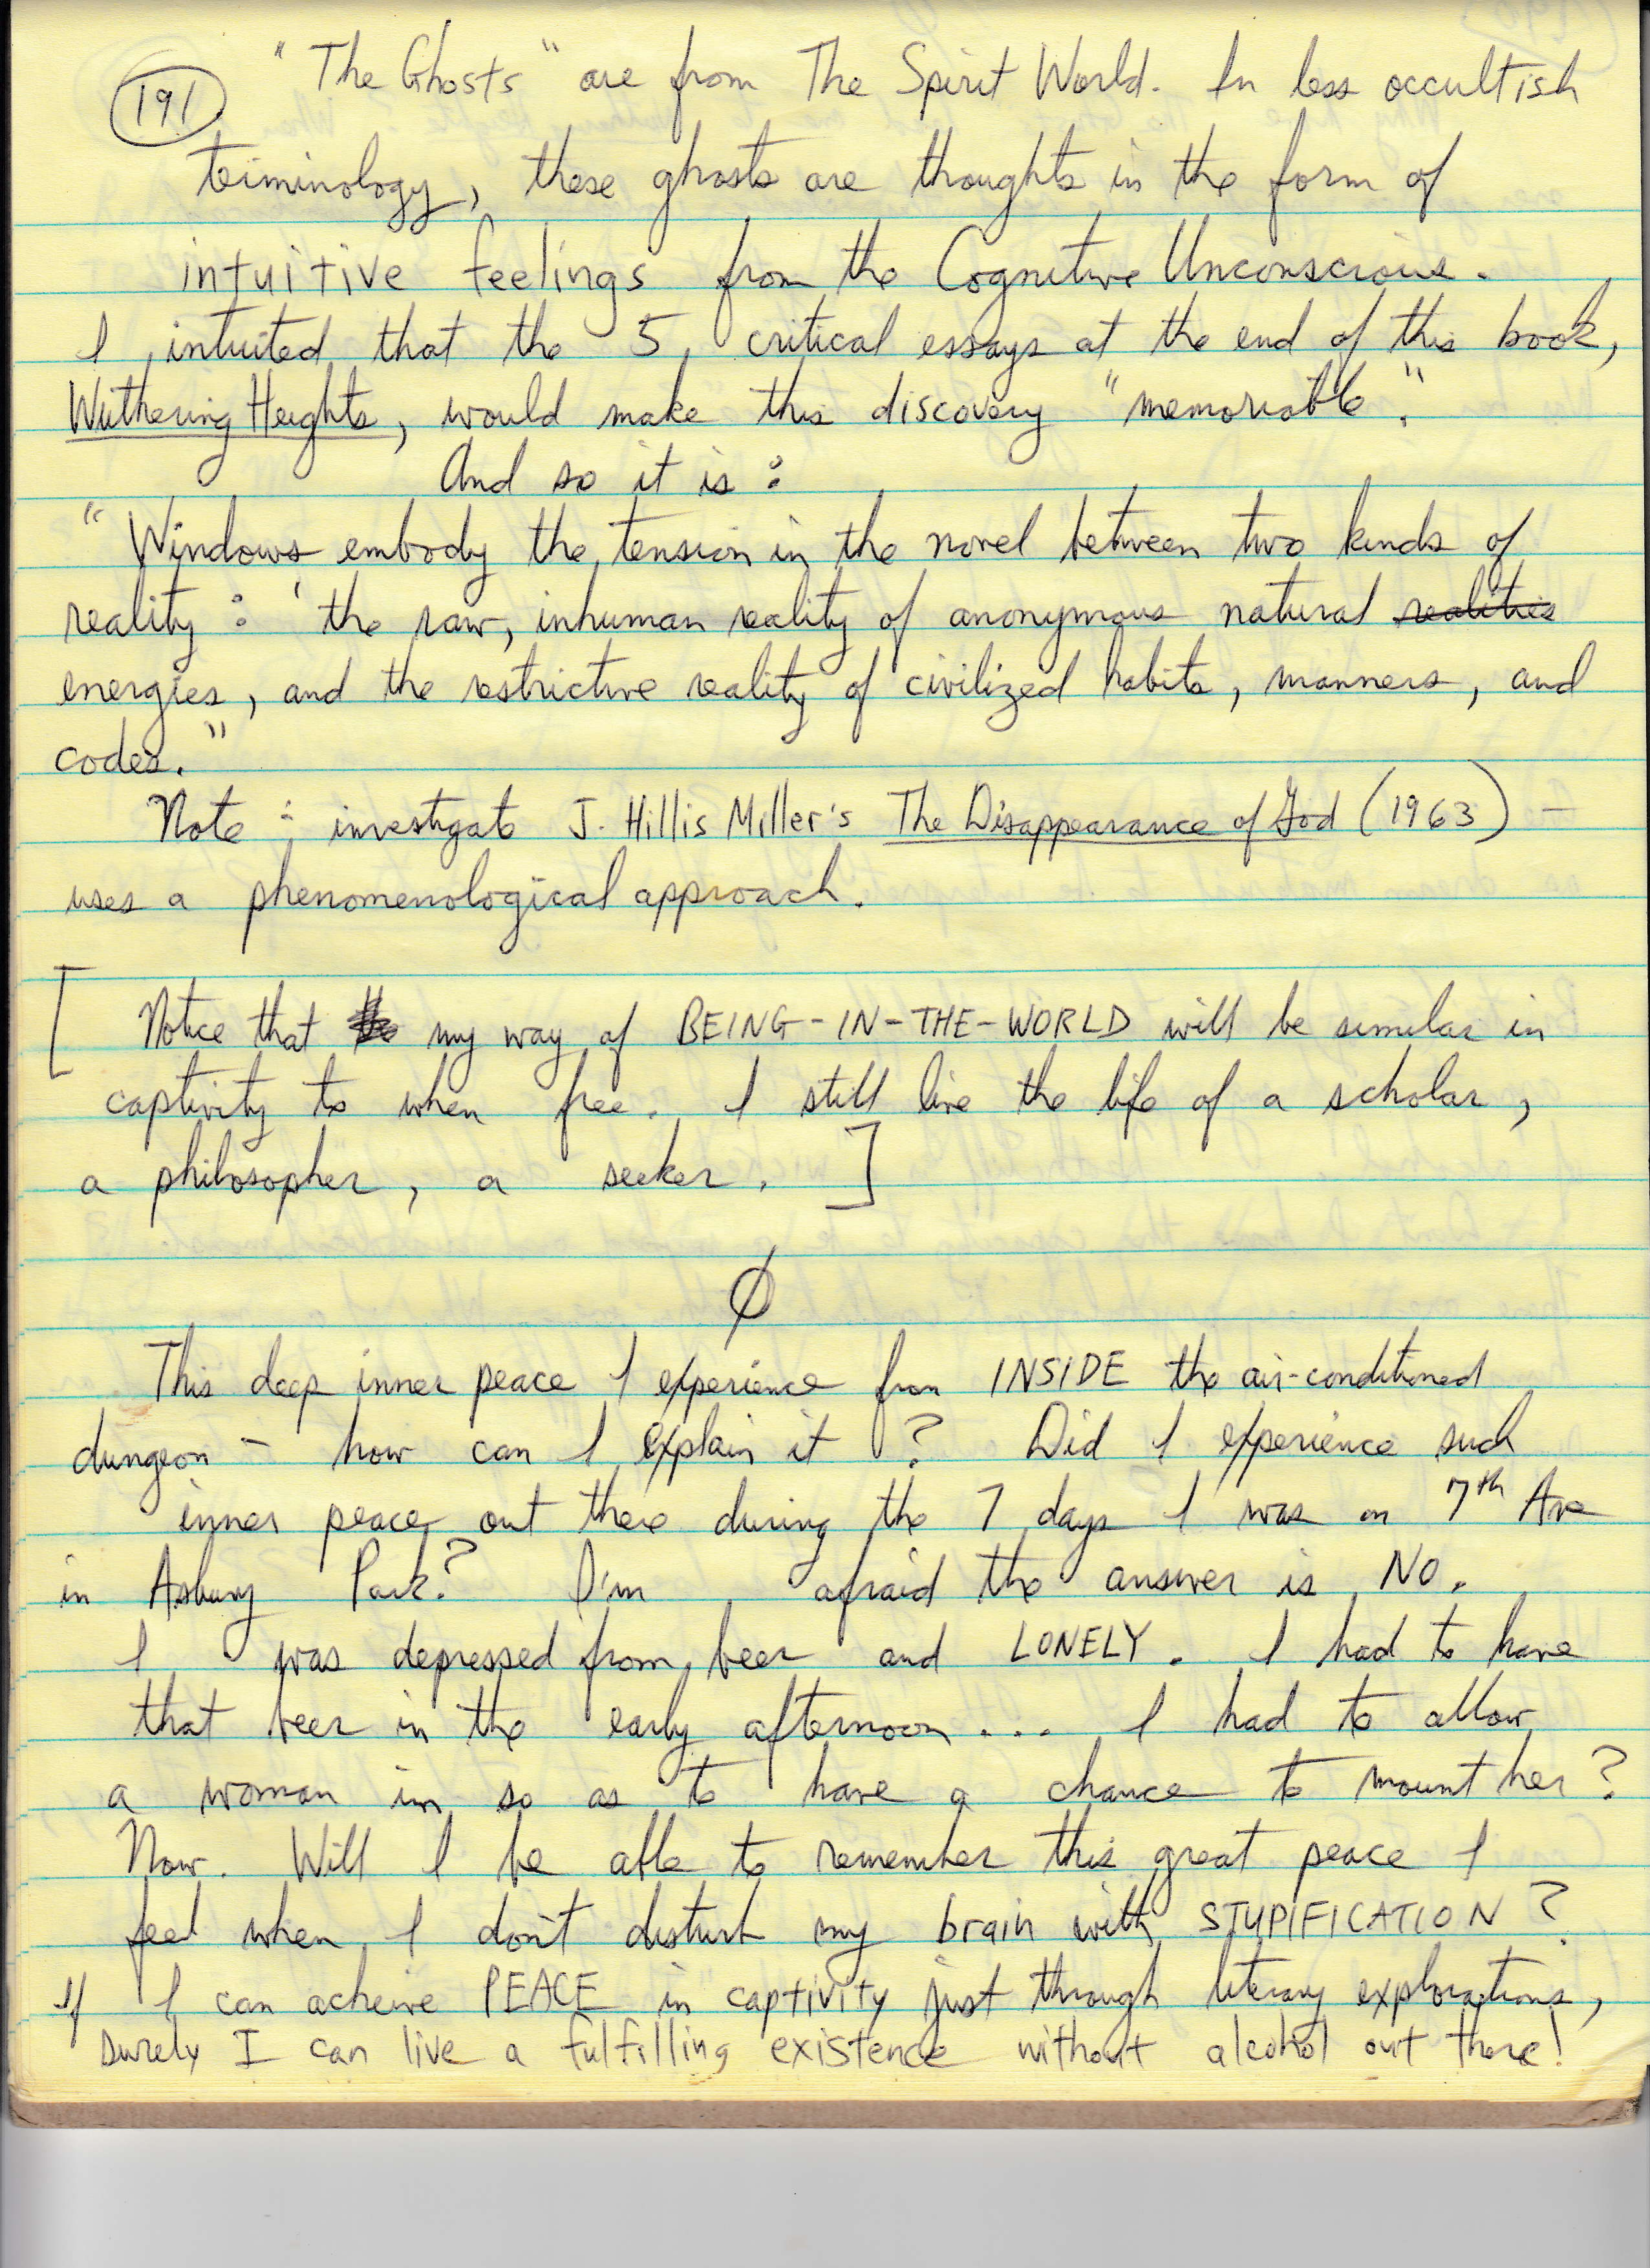 191
"The Ghosts" are from The Spirit World. In less occultish
terminology, these ghosts are thoughts in the form of
intuitive feelings from the Cognitive Unconscious.
I intuited that the 5 critical essays at the end of this book,
Wuthering Heights, would make this discovery "memorable".
And so it is:
"Windows embody the tension in the novel between two kinds of
reality: 'the raw, inhuman reality of anonymous natural realities
energies, and the restrictive reality of civilized habits, manners, and
codes."
Note: investigate J. Hillis Miller's The Disappearance of God (1963) -
uses a phenomenological approach.
[ Notice that my way of BEING-IN-THE-WORLD will be similar in
captivity to when free. I still live the life of a scholar,
a philosopher, a seeker. ]
Ø
This deep inner peace I experience from INSIDE the air-conditioned
dungeon - how can I explain it? Did I experience such
inner peace out there during the 7 days I was on 7th Ave
in Asbury Park? I'm afraid the answer is NO.
I was depressed from beer and LONELY. I had to have
that beer in the early afternoon... I had to allow
a woman in so as to have a chance to mount her?
Now. Will I be able to remember this great peace I
feel when I don't disturb my brain with STUPIFICATION?
If I can acheive PEACE in captivity just through literary explorations,
surely I can live a fulfilling existence without alcohol out there!